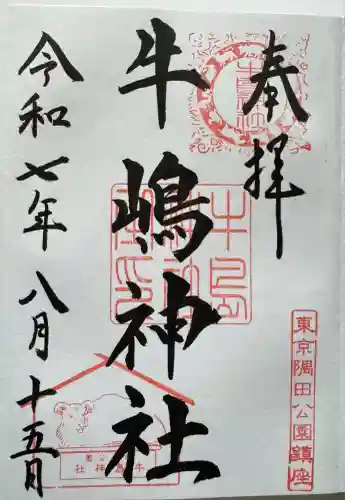 奉拝
東京隅田公園鎮座
牛嶋神社
令和七年八月十五日